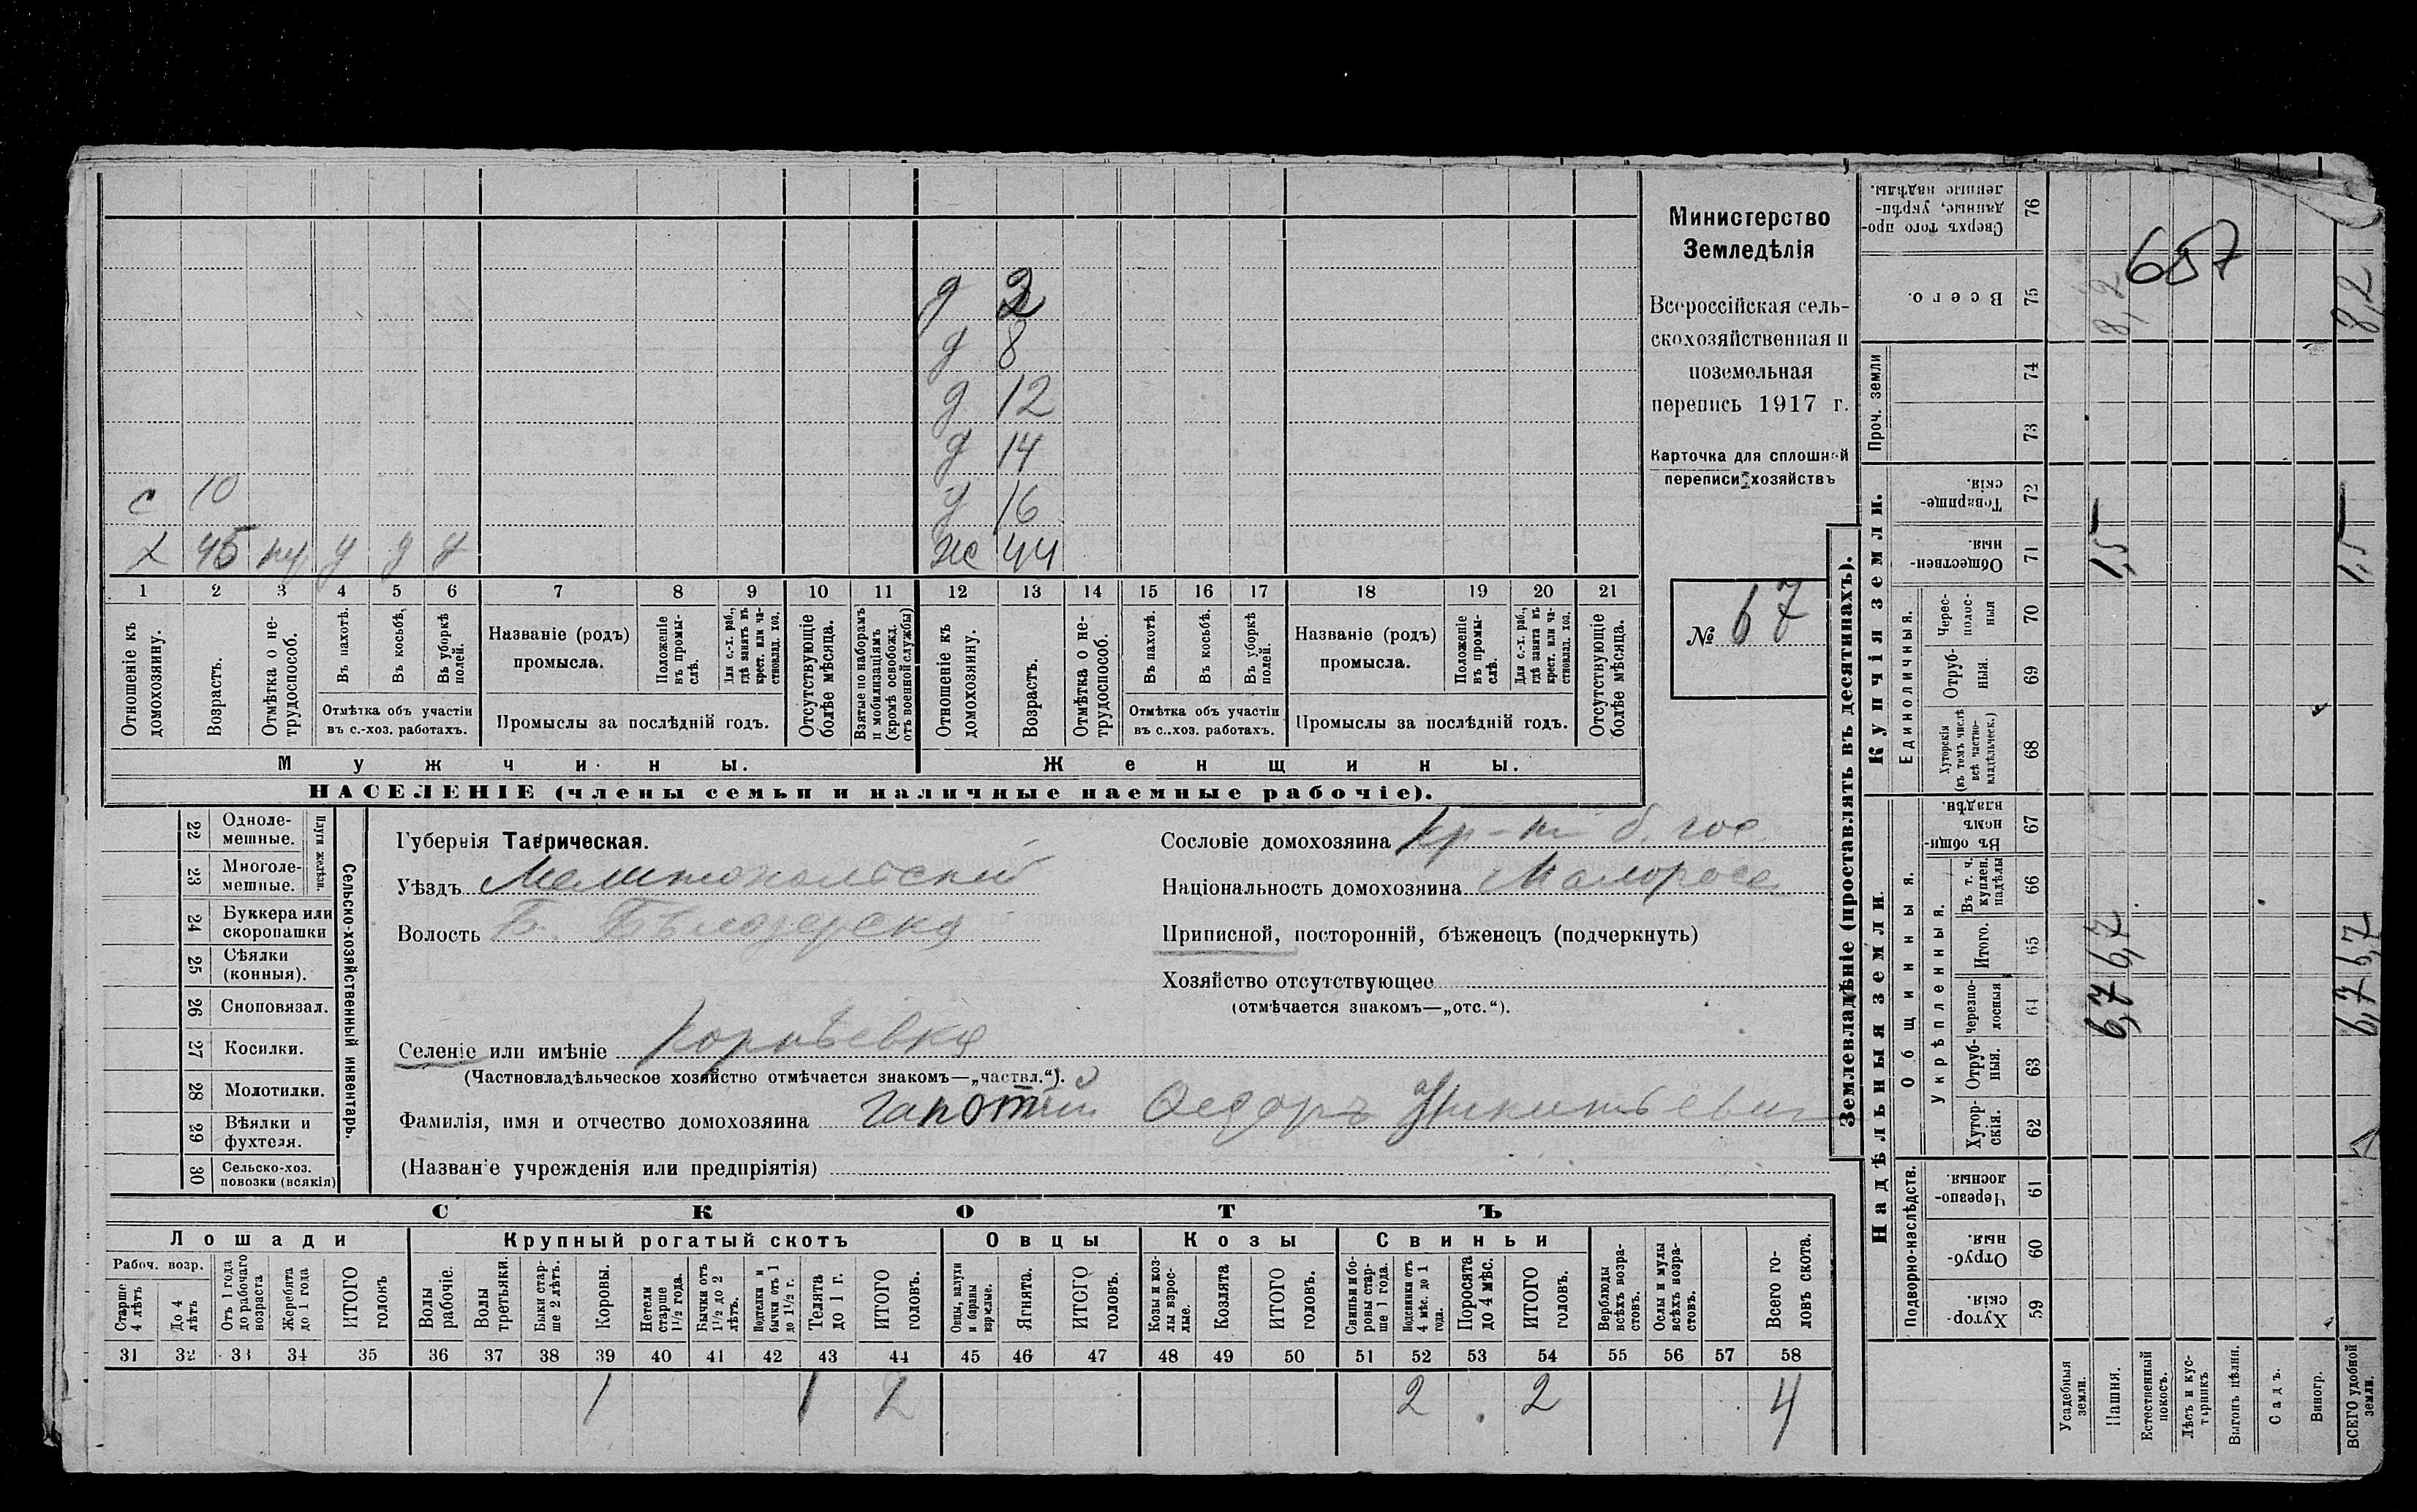 Министерство
Земледѣлія
Всероссійская сель-
скохозяйственная и
поземельная
перепись 1917 г.
Карточка для сплошной
переписи хозяйствъ
№ 67
657
д 2
д 8
д 12
д 14
с 10 д 16
х 45 д ж 44
1 2 3 4 5 6 7 8 9 10 11 12 13 14 15 16 17 18 19 20 21
Отношеніе къ домохозяину.
Возрастъ.
Отмѣтка о не-трудоспособ.
Въ пахотѣ.
Въ косьбѣ,
Въ уборкѣ полей.
Отмѣтка объ участіи
въ с.-хоз. работахъ.
Названіе (родъ)
промысла.
Положеніе въ промы-слѣ.
Для с.-х. раб., гдѣ занятъ въ крест. или ча-стновлад. хоз.
Промыслы за послѣдній годъ.
Отсутствующіе болѣе мѣсяца.
Взятые по наборамъ и мобилизаціямъ (кромѣ освобожд. отъ военной службы)
Отношеніе къ домохозяину.
Возрастъ.
Отмѣтка о не-трудоспособ.
Въ пахотѣ.
Въ косьбѣ.
Въ уборкѣ полей.
Отмѣтка объ участіи
въ с..хоз. работахъ.
Названіе (родъ)
промысла.
Положеніе въ промы-слѣ.
Для с.-х. раб., гдѣ занята въ крест. или ча-стновлад. хоз.
Промыслы за послѣдній годъ.
Отсутствующіе болѣе мѣсяца.
Мужчины. Женщины.
НАСЕЛЕНІЕ (члены семьи и наличные наемные рабочіе).
22 Одноле-мешные.
23 Многоле-мешные.
Плуги желѣзн.
24 Буккера или скоропашки
25 Сѣялки (конныя).
26 Сноповязал.
27 Косилки.
28 Молотилки.
29 Вѣялки и фухтеля.
30 Сельско-хоз. повозки (всякія)
Сельско-хозяйственный инвентарь.
Губернія Таврическая.
Уѣздъ Мелитопольскій
Волость Б. Бѣлозерска
Селеніе или имѣніе Корнѣевка
(Частновладѣльческое хозяйство отмѣчается знакомъ—„частвл.“).
Фамилія, имя и отчество домохозяина Гапотій Ѳедоръ Никитьевич
(Названіе учрежденія или предпріятія)
Сословіе домохозяина кр-н б. гос.
Національность домохозяина Малоросс
Приписной, посторонній, бѣженецъ (подчеркнуть)
Хозяйство отсутствующее
(отмѣчается знакомъ—„отс.“).
СКОТЪ
Лошади Крупный рогатый скотъ Овцы Козы Свиньи
Рабоч. возр.
Старше 4 лѣтъ
До 4 лѣтъ
Отъ 1 года до рабочаго возраста
Жеребята до 1 года
ИТОГО головъ
Волы рабочіе.
Волы третьяки.
Быки стар-ше 2 лѣтъ.
Коровы.
Нетели старше 1½ года.
Бычки отъ 1½ до 2 лѣтъ.
Подтелки и бычки отъ 1 до 1½ г.
Телята до 1 г.
ИТОГО головъ.
Овцы, валухи и бараны взрослые.
Ягнята.
ИТОГО головъ.
Козы и коз-лы взрос-лые.
Козлята
ИТОГО головъ.
Свиньи и бо-ровы стар-ше 1 года.
Подсвинки отъ 4 мѣс. до 1 года.
Поросята до 4 мѣс.
ИТОГО головъ.
Верблюды всѣхъ возра-стовъ.
Ослы и мулы всѣхъ возра-стовъ.
Всего го-ловъ скота.
31 32 33 34 35 36 37 38 39 40 41 42 43 44 45 46 47 48 49 50 51 52 53 54 55 56 57 58
1 1 2 2 2 4
Землевладѣніе (проставлять въ десятинахъ).
Надѣльныя земли. Купчія земли. Проч. земли
Подворно-наслѣдств. Общинныя. Укрѣпленныя. Единоличныя.
Хутор-скія. 59
Отруб-ныя. 60
Черезпо-лосныя. 61
Хутор-скія. 62
Отруб-ныя. 63
Черезпо-лосныя 64
Итого. 65
Въ т. ч. куплен. надѣлы 66
Въ общин-номъ владѣн. 67
Хуторскія (въ томъ числѣ всѣ частно-владѣльческ.) 68
Отруб-ныя. 69
Черес-полос-ныя 70
Обществен-ныя. 71
Товарище-скія. 72
73
74
Всего. 75
Сверхъ того про-данные, укрѣп-ленные надѣлы. 76
Усадебныя земли.
Пашня. 6,7 6,7 1,5 8,2
Естественный покосъ.
Лѣсъ и кус-тарникъ
Выгонъ цѣлин.
Садъ.
Виногр.
ВСЕГО удобной земли. 6,7 6,7 1,5 8,2